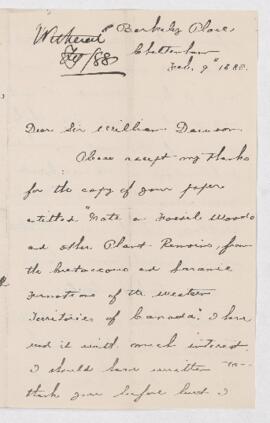 Witherell
/88
Berkeley Place,
Cheltenham
Feb. 9th 1888.
Dear Sir William Dawson
Please accept my thanks
for the copy of your paper
entitled "Note on Fossil Woods
and other Plant Remains, from
the Cretaceous and Laramie
Formations of the Western
Territories of Canada". I have
read it with much interest.
I should have written to
thank you before but I